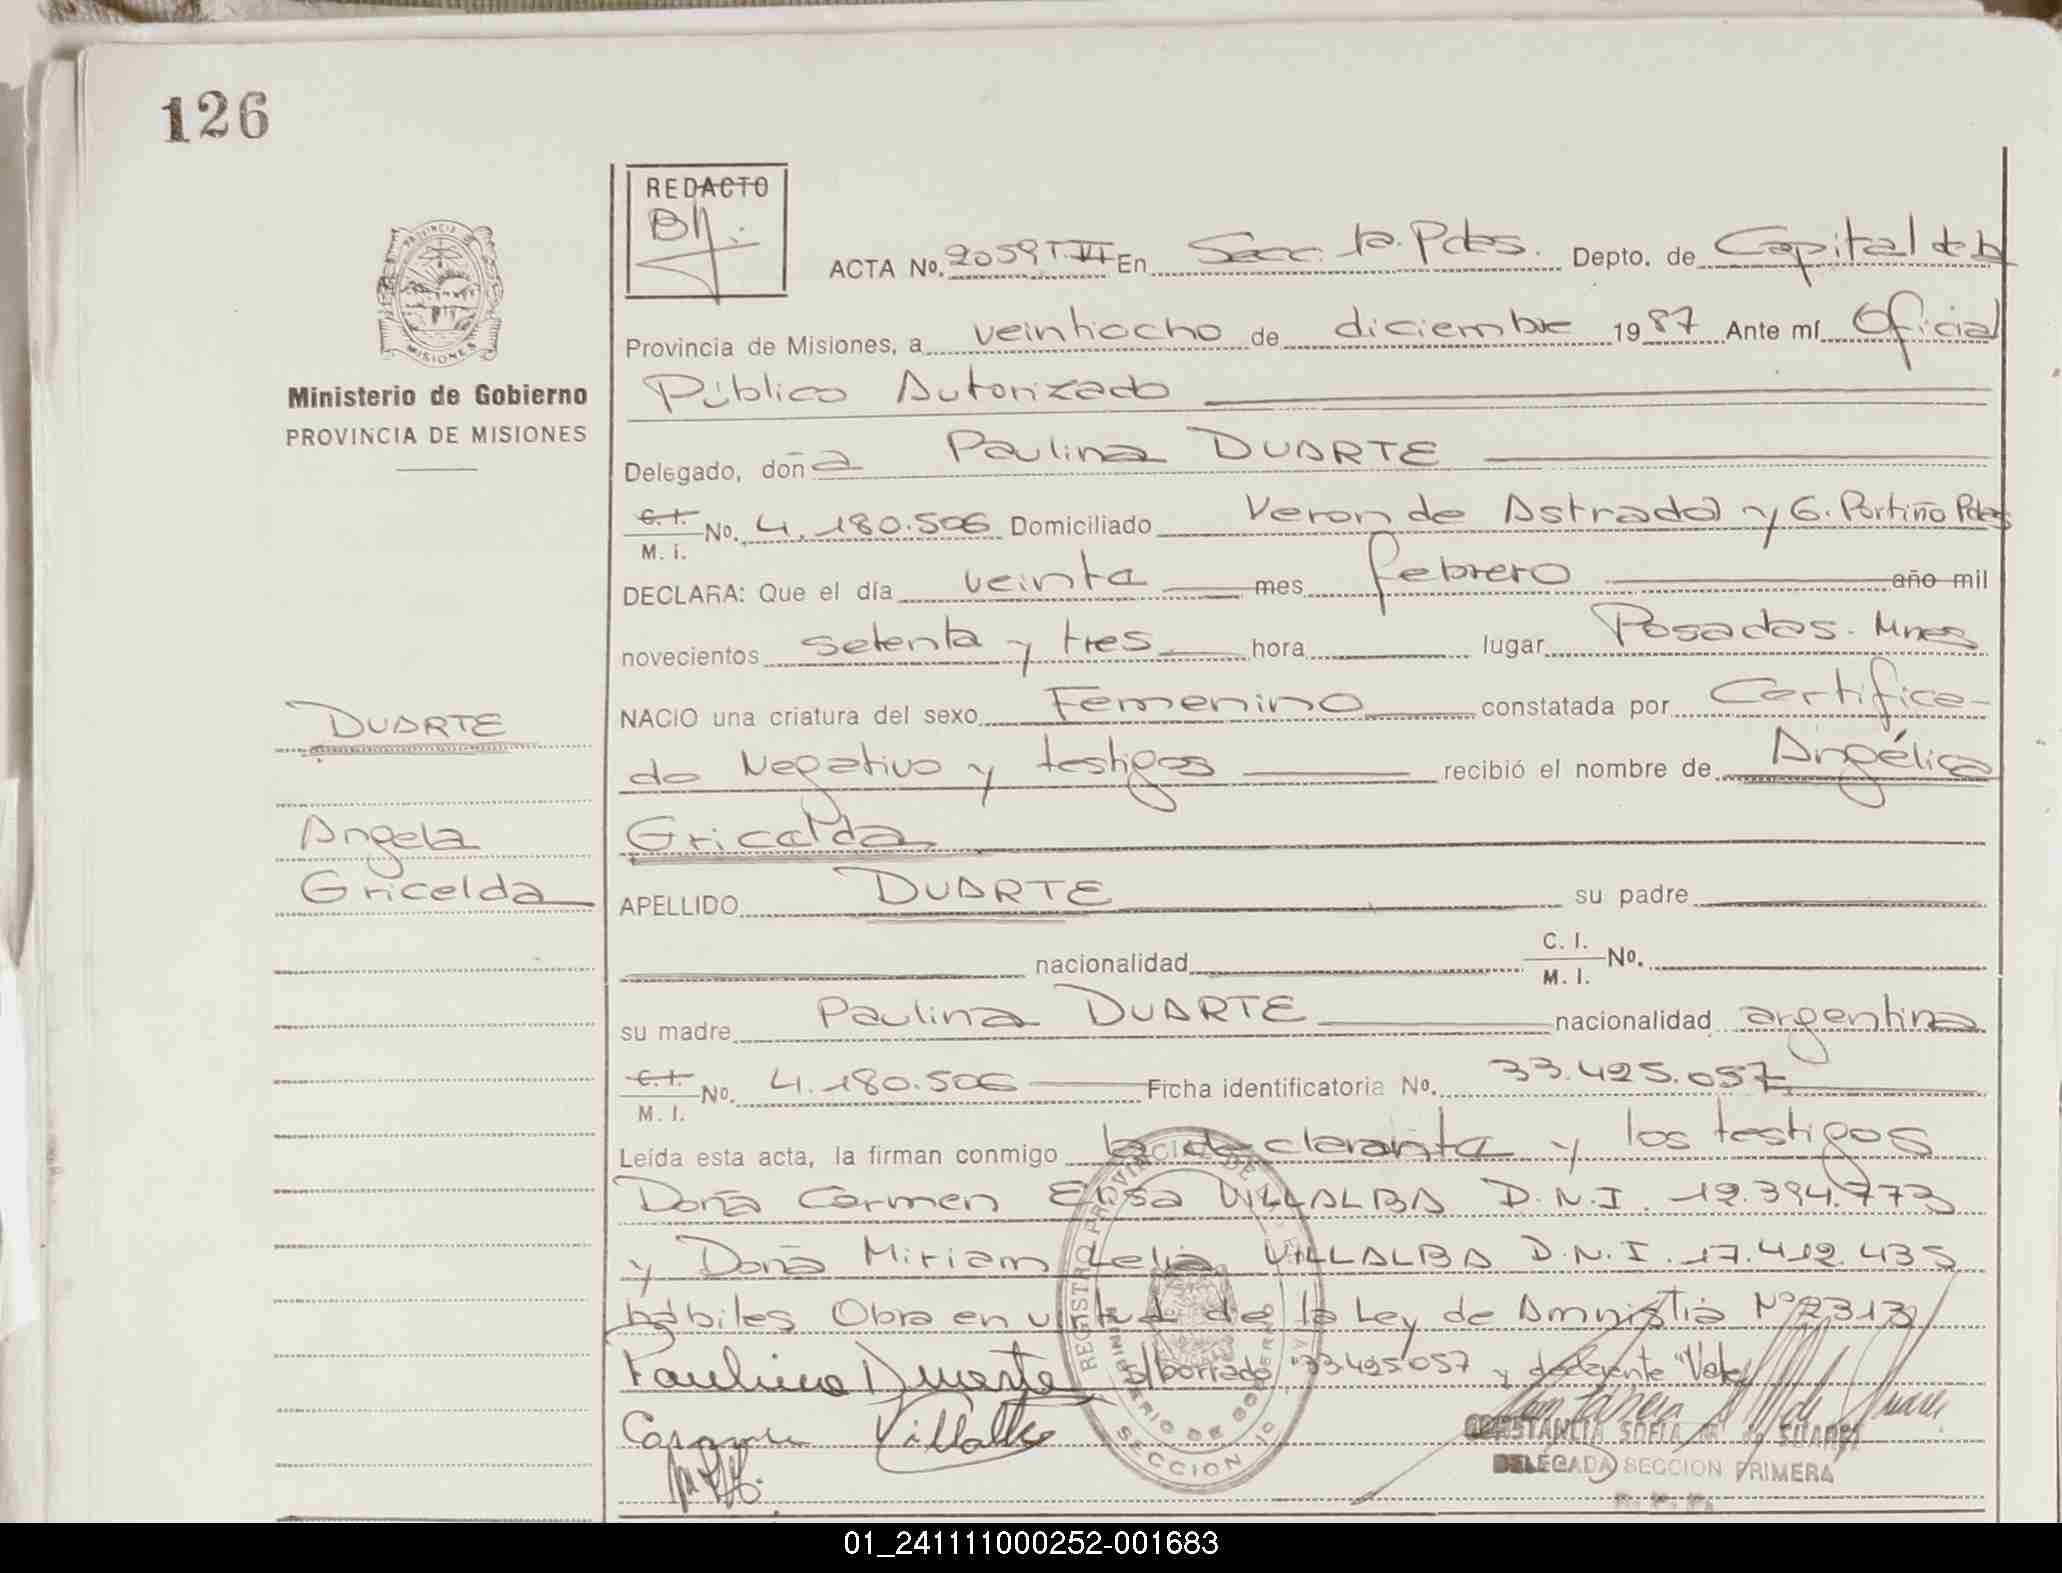 126
REDACTO
ACTA No. 2059 T VI En Secc. 1a. Pdas. Depto. de Capital de la
Provincia de Misiones, a veintiocho de diciembre 1987 Ante mí Oficial
Público Autorizado
Ministerio de Gobierno
PROVINCIA DE MISIONES
Delegado, doña Paulina DUARTE
C. I. M. I. No. 4.180.506 Domiciliado Veron de Astrada y G. Portiño Pdas
DECLARA: Que el día veinte mes febrero año mil
novecientos setenta y tres hora lugar Posadas. Mnes
NACIO una criatura del sexo Femenino constatada por Certifica-
do Negativo y testigos recibió el nombre de Angélica
Gricelda
DUARTE
Angela
Gricelda
APELLIDO DUARTE su padre
nacionalidad C. I. M. I. No.
su madre Paulina DUARTE nacionalidad argentina
C. I. M. I. No. 4.180.506 Ficha identificatoria No. 33.425.057
Leída esta acta, la firman conmigo la declarante y los testigos
Doña Carmen Elisa VILLALBA D.N.I. 12.394.773
y Doña Miriam Lelia VILLALBA D.N.I. 17.412.435
hábiles Obra en virtud de la Ley de Amnistia Nº 2313
Paulina Duarte s/borrado "33425057 y declarante "Vale
Carmen Villalba
CONSTANCIA SOFIA de SUAREZ
DELEGADA SECCION PRIMERA
R. P. P.
REGISTRO PROVINCIAL DE
MINISTERIO DE GOBIERNO
SECCION 1º
PROVINCIA
MISIONES
01_241111000252-001683